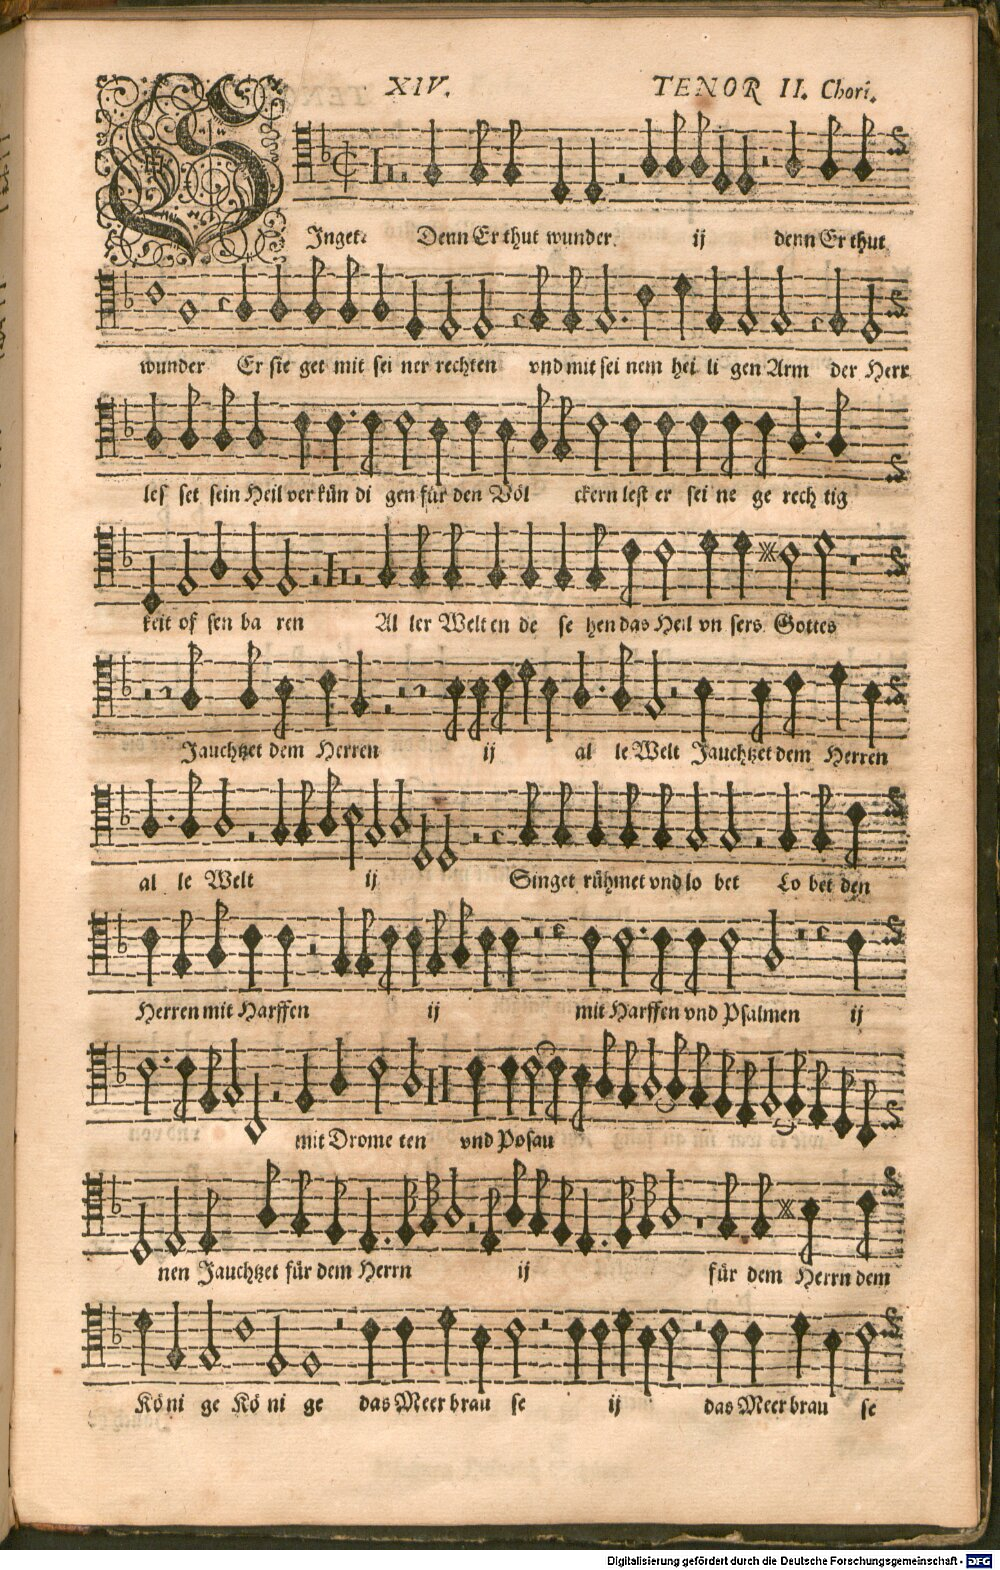 XIV. TENOR II. Chori.
SInget. Denn Er thut wunder. ij denn Er thut
wunder Er sie get mit sei ner rechten vnd mit sei nem hei li gen Arm der Herr
les set sein Heil ver kün di gen für den Völ ckern lest er sei ne ge rech tig
keit of fen ba ren Al ler Welt en de se hen das Heil vn sers Gottes
Jauchtzet dem Herren ij al le Welt Jauchtzet dem Herren
al le Welt ij Singet rühmet vnd lo bet Lo bet den
Herren mit Harffen ij mit Harffen vnd Psalmen ij
mit Drome ten vnd Posau
nen Jauchtzet für dem Herrn ij für dem Herrn dem
Kö ni ge Kö ni ge das Meer brau se ij das Meer brau se
Digitalisierung gefördert durch die Deutsche Forschungsgemeinschaft - DFG